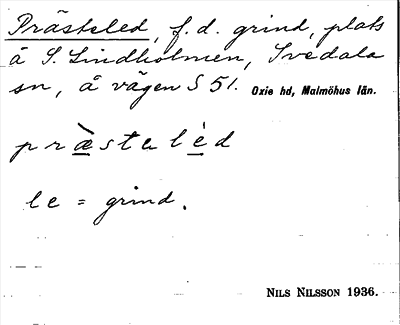 Prästeled, f.d. grind, plats
å S. Lindholmen, Svedala
sn, å vägen S 51. Oxie hd, Malmöhus län.
præ̀stalèd
le = grind.
NILS NILSSON 1936.